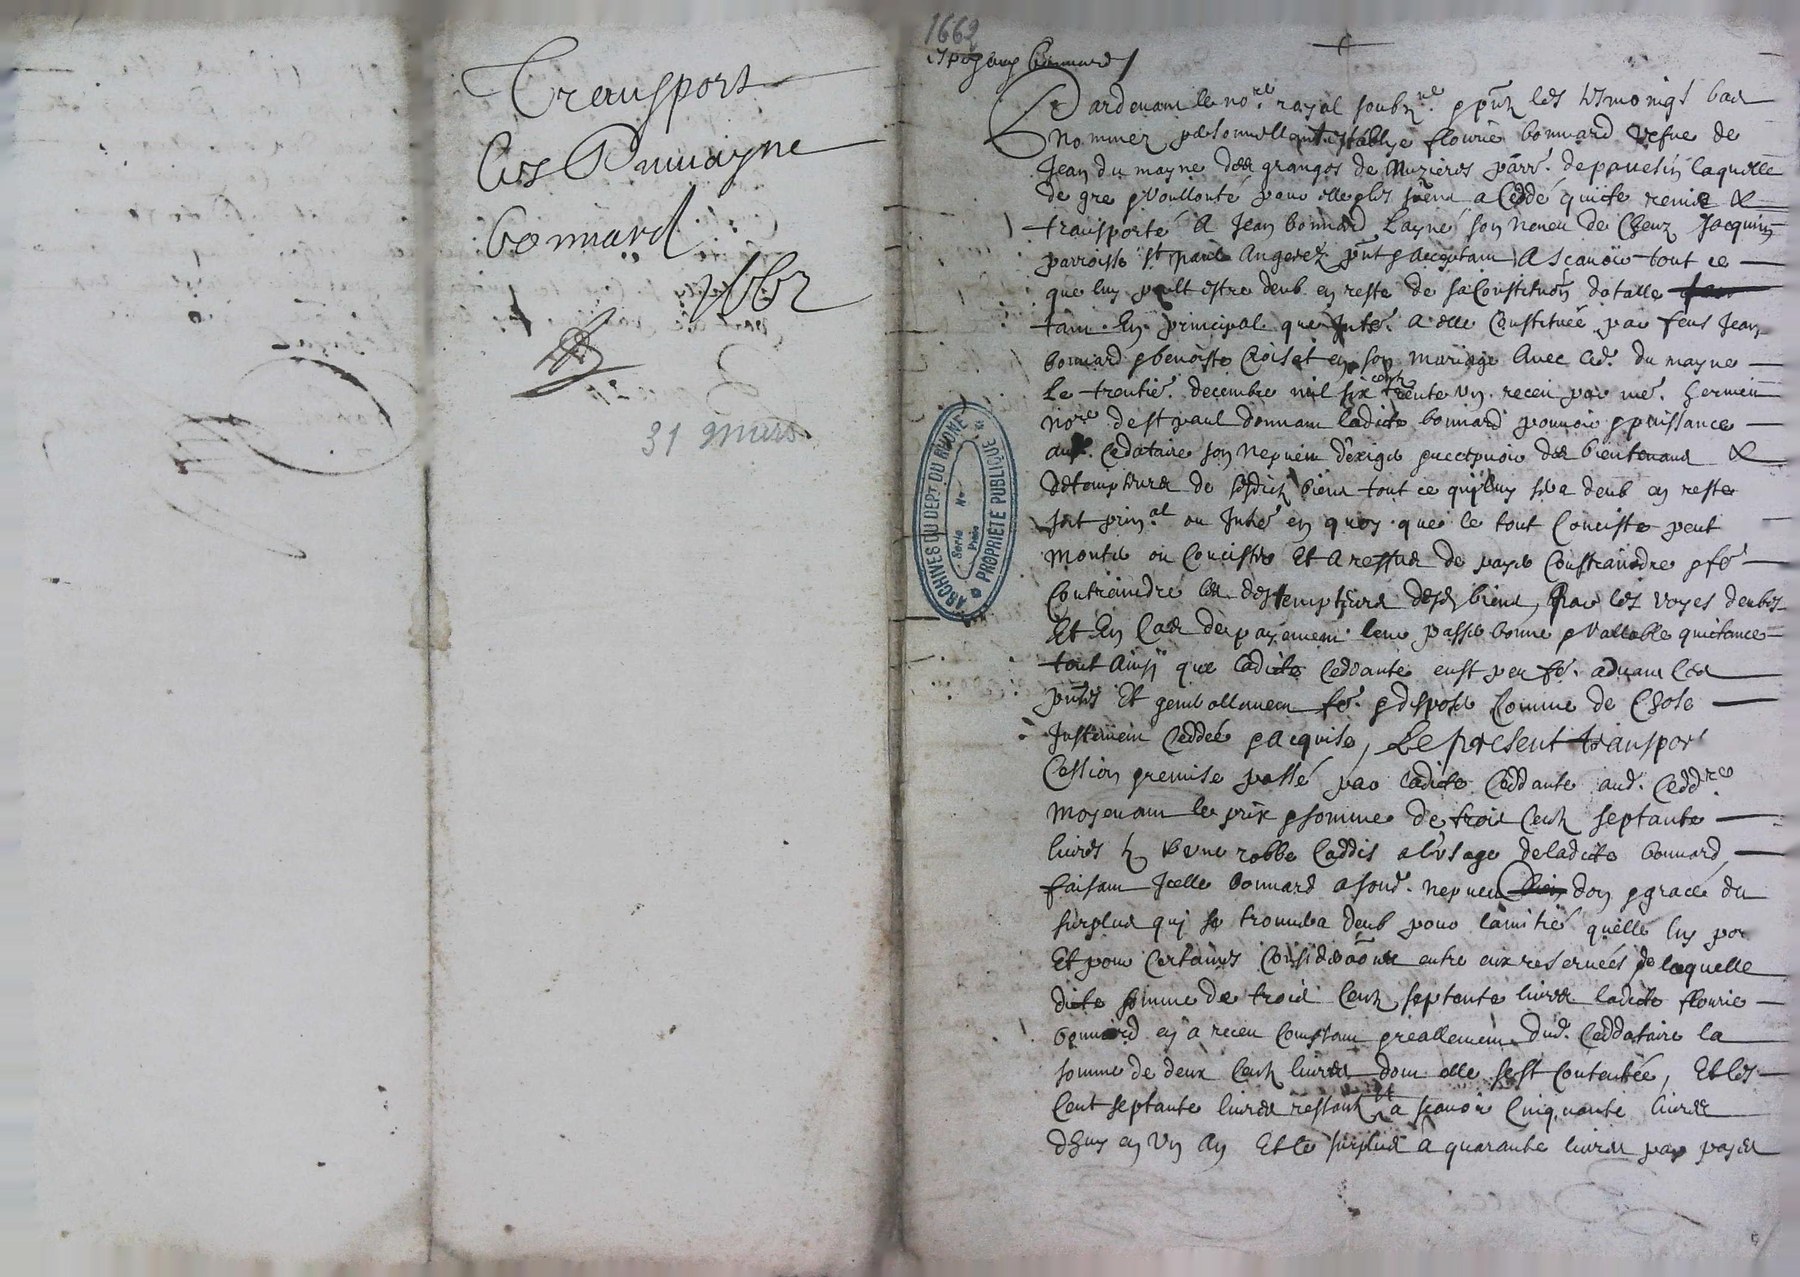 Transport
Les Dumayne
Bonnard
1662
31 mars
1662
Bonnard
Pardevant le no.re royal soubz.ne & p̃ntz les tesmoings bas
nommez personnellement establye flourie bonnard vefve de
Jean du mayne des granges de Muzieres parr. de pavesin laquelle
de gre & voullonté pour elle & les siens a Cedé quicte remis &
transporté A Jean bonnard Layné son neveu de Cheuz Jacquin
parroisse st paul Angerez p̃nt & acceptant A scavoir tout ce
que luy peult estre deub en reste de sa Constitution dotalle
tant En principal que Inte. a elle Constituée par feus Jean
bonnard & benoiste Croiset en son mariage Avec led. du mayne
Le trentie. decembre mil six centz trente un receu par me. Germein
no.re de st paul donnant ladicte bonnard pouvoir & puissance
aud. Cedataire son nepveu d'exiger & recepvoir des bientenans &
detempteurs de sesdictz biens tout ce quj luy sera deub en reste
soit prin.al ou Inte. en quoy que le tout Conciste peut
monter ou Concister Et a reffus de payer Constraindre & fe.
Contraindre les destempteurs desd. biens par les voyes deubes
Et En Cas de payement leur passer bonne & vallable quictance
tout Ainsj que ladicte Ceddante eust peu fe. advant Ces
p̃ntes Et generallement fe. & disposer Comme de Chose
Justement Ceddée & acquise, Le present transport
Cession & remise passé par ladicte Ceddante aud. Cedd.re
moyenant le prix & somme de trois Centz septante
livres & une robbe Caddis a l'usage de ladicte bonnard
faisant Jcelle bonnard a sond. nepveu don & grace du
surplus quj se trouvera deub pour lamitié quelle luy por
Et pour Certaines Considerãons entre eux reservées de laquelle
dicte somme de trois Centz septante livres ladicte flourie
bonnard en a receu Comptant & reallement dud. Ceddataire la
somme de deux Centz livres dont elle sest Contentée, Et les
Cent septante livres restantz a scavoir Cinquante livres
d'huy en Un An Et le surplus a quarante livres par payes
ARCHIVES DU DEPT. DU RHONE
PROPRIÉTÉ PUBLIQUE
Serie No
Pièce